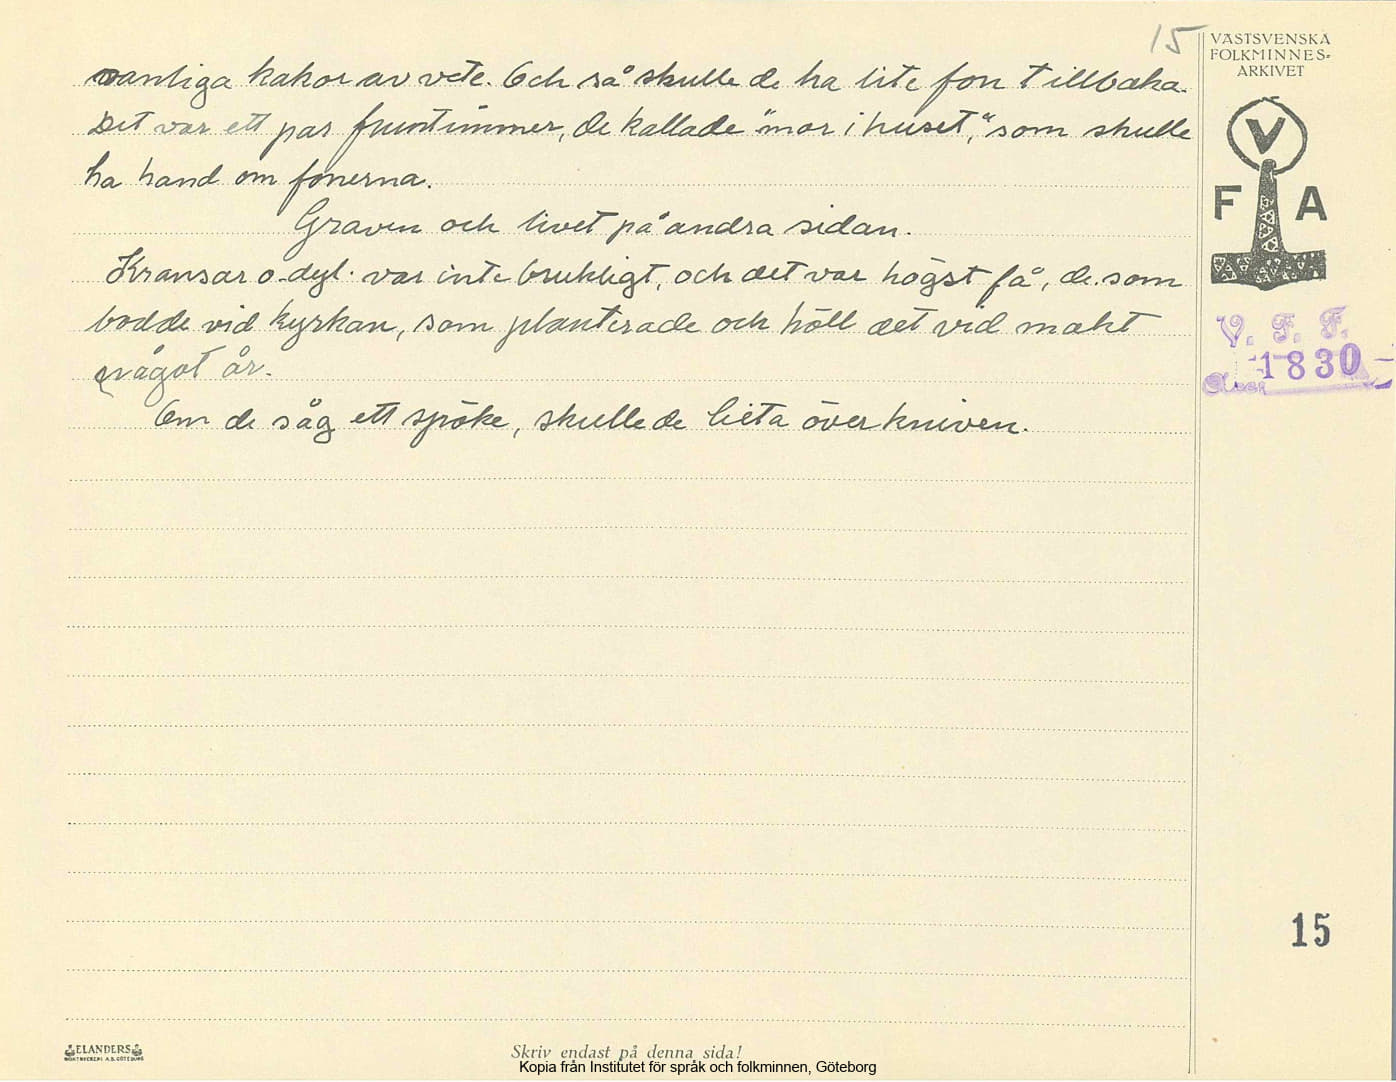 15
VÄSTSVENSKA
FOLKMINNES-
ARKIVET
vanliga kakor av vete. Och så skulle de ha lite fön tillbaka.
Det var ett par fruntimmer, de kallade "mor i huset," som skulle
ha hand om fönerna.
Graven och livet på andra sidan.
Kransar o.dyl. var inte brukligt, och det var högst få, de som
bodde vid kyrkan, som planterade och höll det vid makt
något år.
Om de såg ett spöke, skulle de lieta över kniven.
V
F A
V. F. F.
1830
15
ELANDERS
BOKTRYCKERI A.B. GÖTEBORG
Skriv endast på denna sida!
Kopia från Institutet för språk och folkminnen, Göteborg